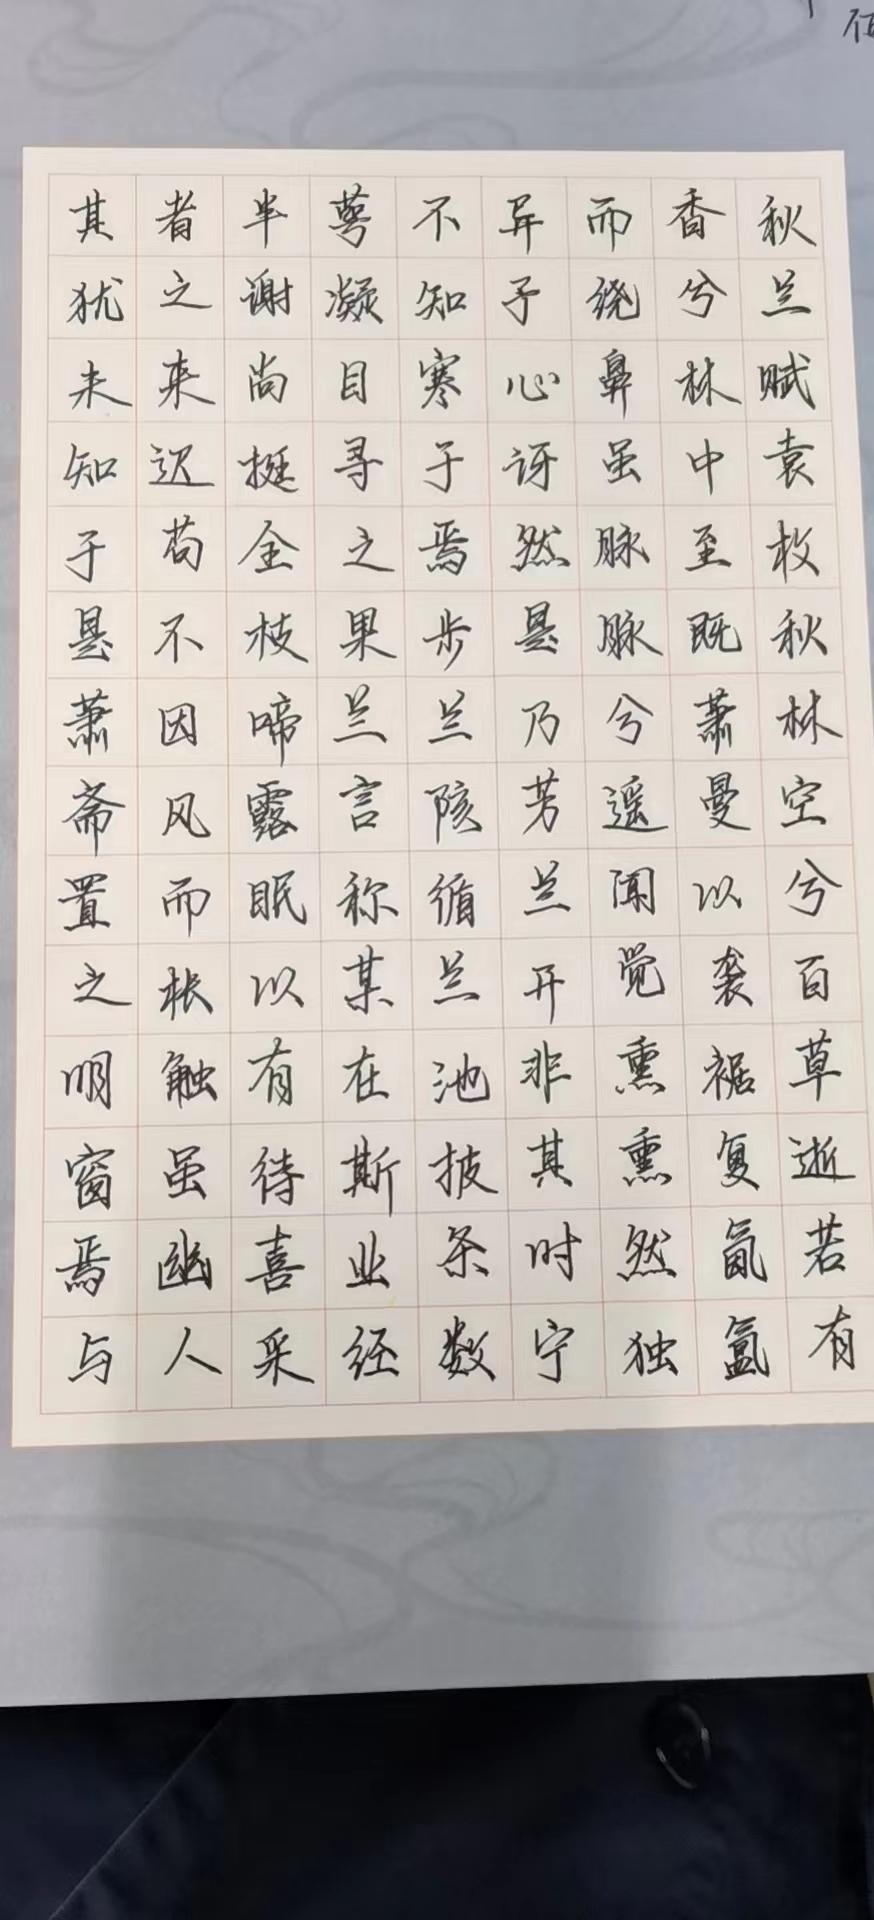 秋兰赋袁枚秋林空兮百草逝若有
香兮林中至既萧曼以袭裾复氤氲
而绕鼻虽脉脉兮遥闻觉熏熏然独
异予心讶然是乃芳兰开非其时宁
不知寒于焉步兰陔循兰池披条数
萼凝目寻之果兰言称某在斯业经
半谢尚挺全枝啼露眠以有待喜采
者之来迟苟不因风而枨触虽幽人
其犹未知于是萧斋置之明窗焉与